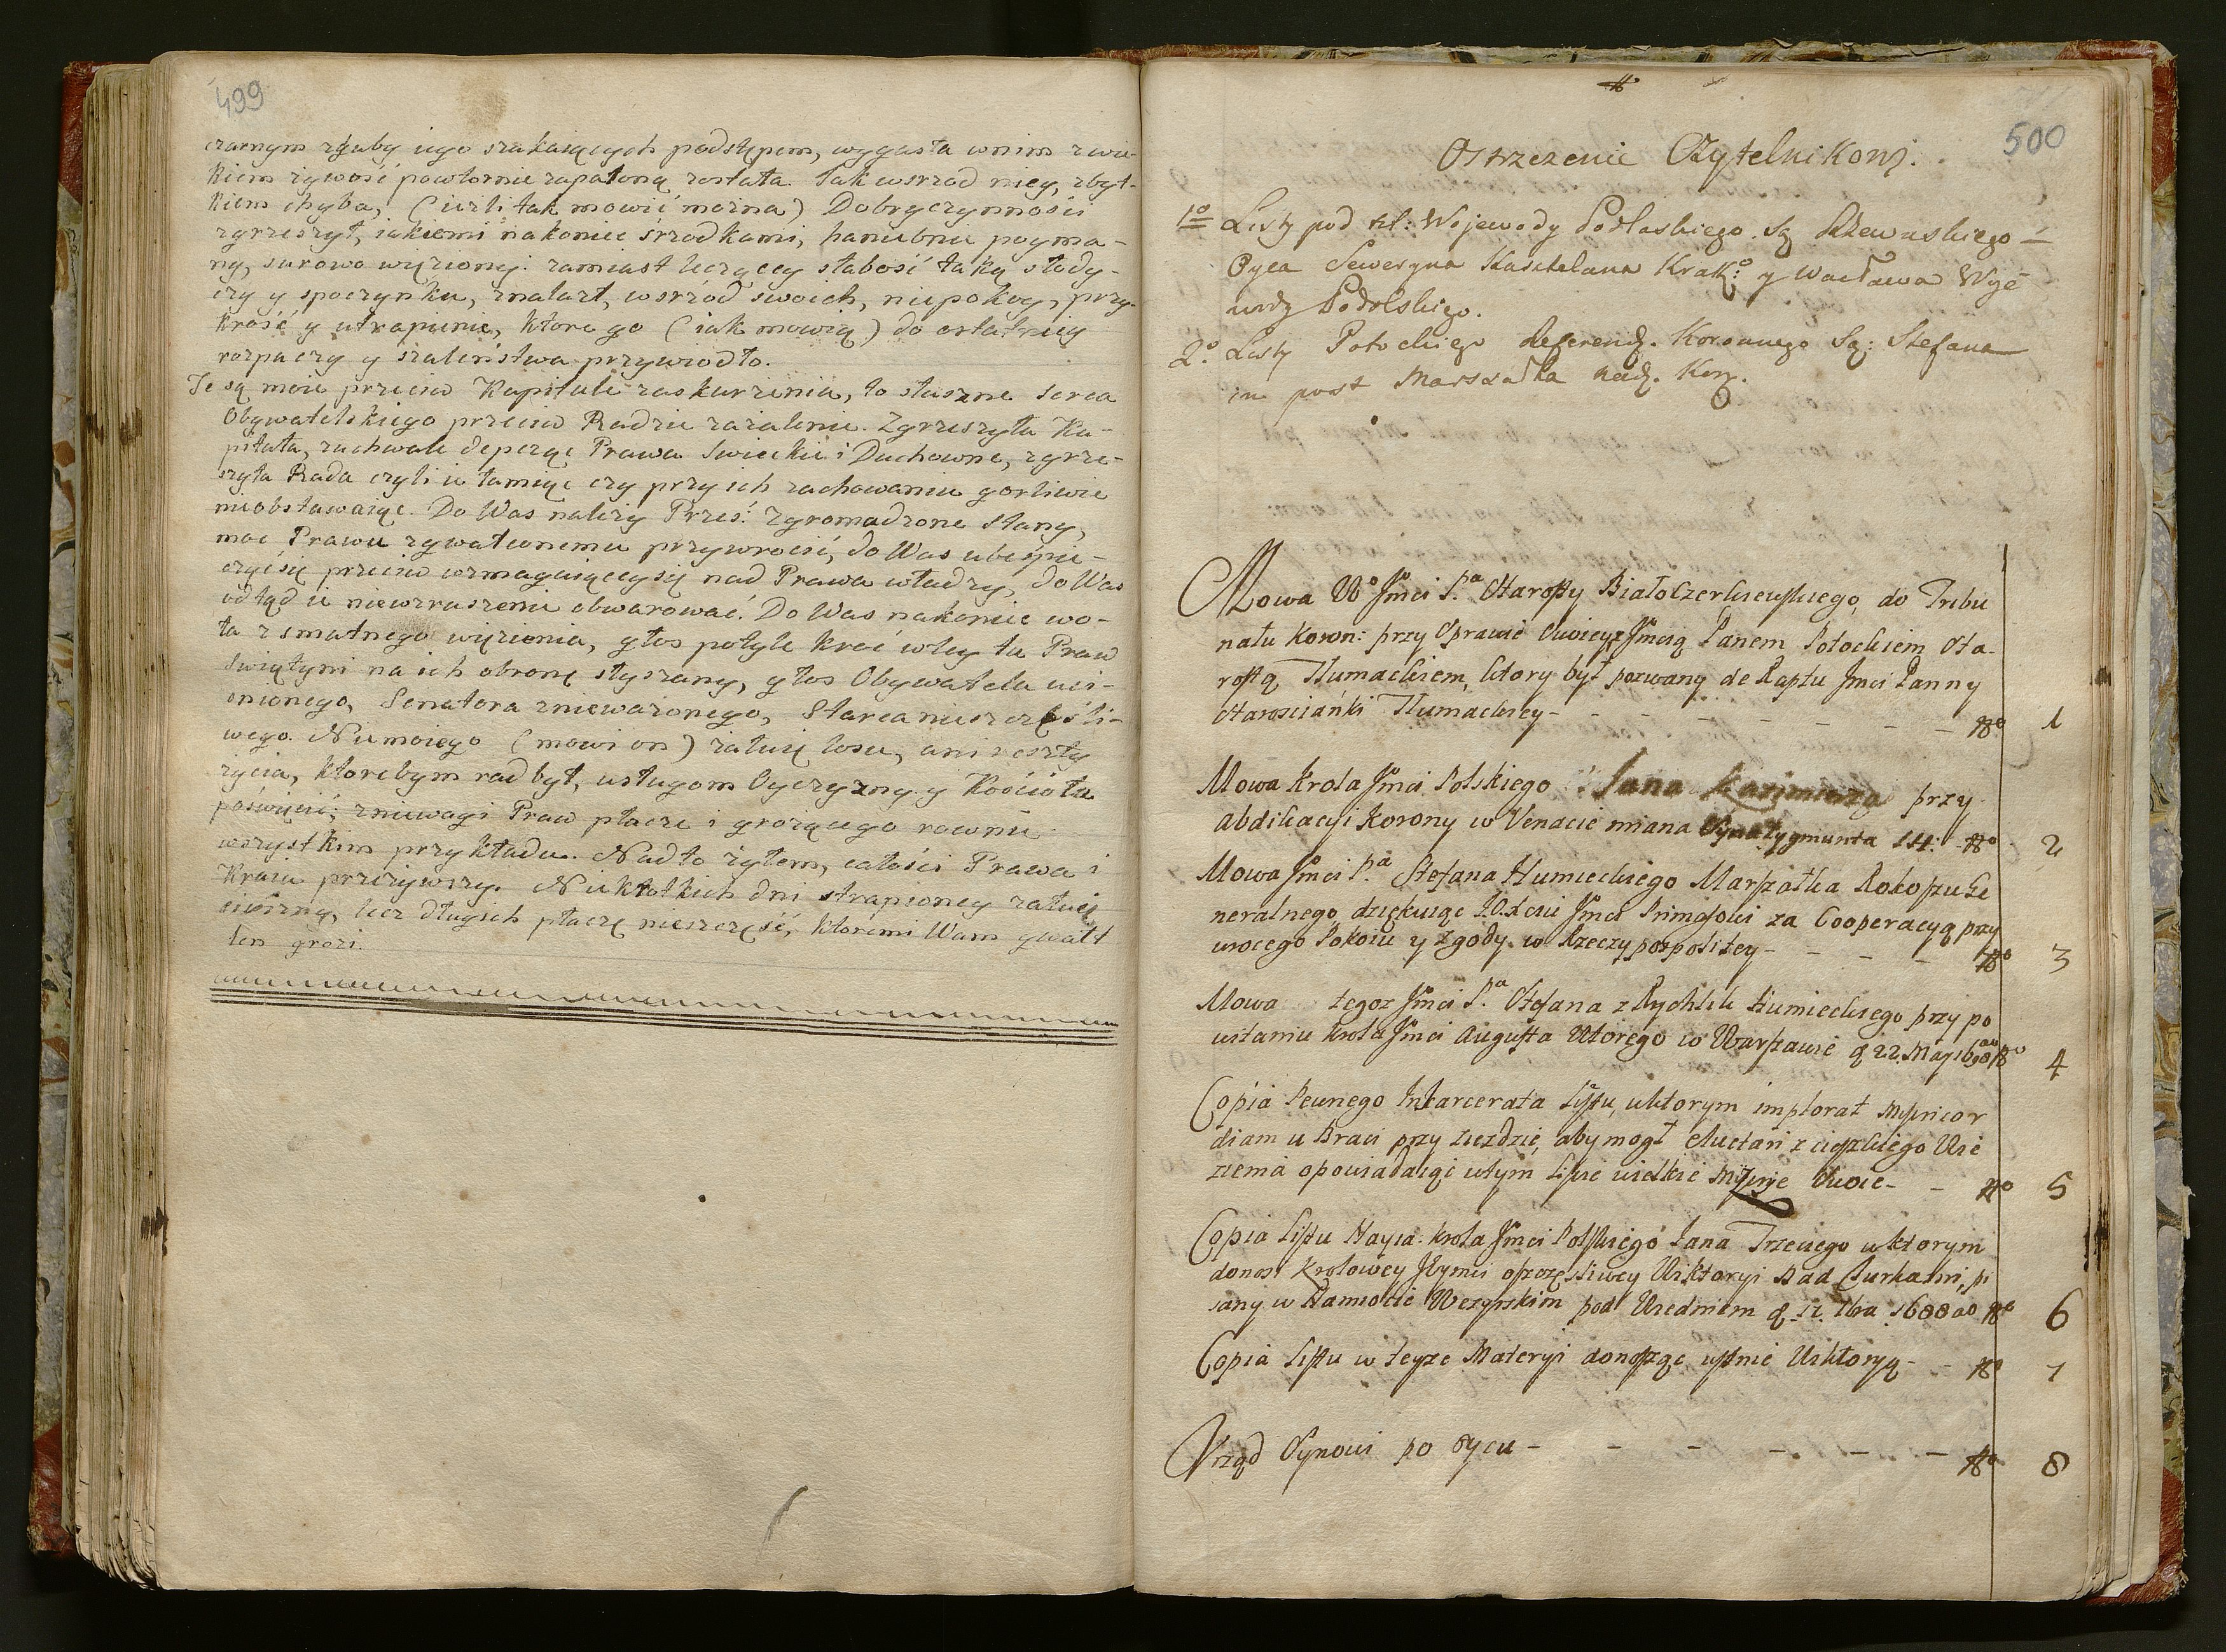 499
czarnym zguby iego szukaiących podstępem, wygasła wnim zwie-
kiem żywość powtornie zapaloną została. Tak wsrzod niey, zbyt-
kiem chyba, (ieżli tak mowić można) Dobroczynności
zgrzeszył, iakiemi nakoniec srzodkami, haniebnie poyma-
ny, surowo więziony: zamiast leczącey słabość taką słody-
czy y spoczynku, znalazł, wsrzod swoich, niepokoy, przy-
krość y utrapienie, ktore go (iak mowią) do ostatniey
rozpaczy y szaleństwa przywiodło.
Te są moie przeciw Kapitule zaskarzenia, to słuszne serca
Obywatelskiego przeciw Radzie zażalenie. Zgrzeszyła Ka-
pituła, zuchwale depcząc Prawa Swieckie i Duchowne, zgrze-
szyła Rada czyli ie łamiąc czy przy ich zachowaniu gorliwie
nieobstawaiąc. Do Was należy Prześ: zgromadzone Stany,
moc Prawu zgwałconemu przywrocić, do Was ubespie-
czyć się przeciw wzmagaiącey się nad Prawa władzy, do Was
odtąd ie niewzruszenie obwarować. Do Was nakoniec wo-
ła z smutnego więzienia, głos potyle kroć wtey tu Praw
Swiątyni na ich obronę słyszany, głos Obywatela uci-
snionego, Senatora znieważonego, Starca nieszczęśli-
wego. Nie moiego (mowi on) żałuię losu, ani reszty
życia, ktore bym rad był, usługom Oyczyzny y Kościoła
poświęcić; zniewagi Praw płaczę i grożącego rownie
wszystkim przykładu. Nadto żyłem, całości Prawa i
Kraiu przeżywszy. Nie krotkich dni strapioney żałuię
siwizny, lecz długich płaczę nieszczęść, ktoremi Wam gwałt
ten grozi.
500
Ostrzezenie Czytelnikowj.
1o Listy pod tit: Wojewody Podlaskiego. Są Rzewuskiego
Oyca Seweryna Kasztelana Krak:o y Wacława Woje
wody Podolskiego.
2o. Listy Potockiego Referend. Koronnego Są: Stefana
in post Marszałka nad. Kor.
Mowa Wo Jmci Pa Starosty Białocerkiewskiego, do Trybu
nału Koron: przy Sprawie Swoiey z Jmcią Panem Potockiem Sta-
rostą Tłumackiem, ktory był pozwany de Raptu Jmci Panny
Starościanki Tłumackiey - - - - - - - No 1
Mowa Krola Jmci Polskiego Jana Kazimierza przy
abdikacyi Korony w Senacie miana Syna Zygmunta III: No 2
Mowa Jmci Pa Stefana Humieckiego Marszałka Rokoszu Ge
neralnego dziękuiąc JO. Xciu Jmci Primasowi za Cooperacyą przy
wrocego Pokoiu y Zgody w Rzeczypospolitey - - - - No 3
Mowa tegoz Jmci Pa Stefana z Rychtik Humieckiego przy po
witaniu Krola Jmci Augusta Wtorego w Warszawie d 22. May 1698 No 4
Copia Pewnego Inkarcerata Listu, wktorym implorat Misericor
diam u Braci przy Zieździe, aby mogł eluctari z cięszkiego Wię
zienia opowiadaiąc wtym Liście wielkie Miserje Swoie - - No 5
Copia Listu Nayia. Krola Jmci Polskiego Jana Trzeciego w ktorym
donosi Krolowey Jeymci oszczęsliwey Wiktoryi nad Turkami, pi
sany w Namiocie Wezyrskim pod Wiedniem d. 12. 7bra 1688 ao No 6
Copia Listu w teyze Materyi donosząc ustnie Wiktoryą - - No 7
Urząd Synowi po Oycu - - - - - - No 8